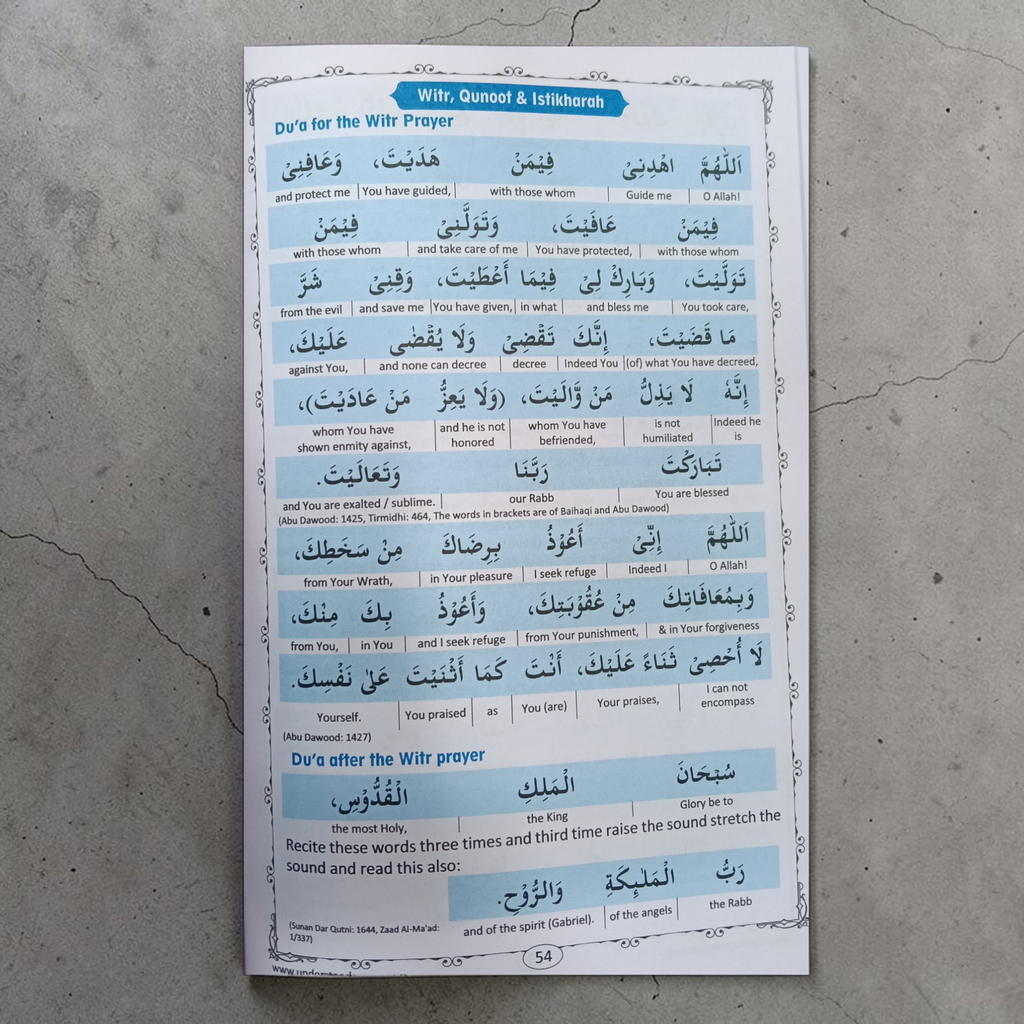 Witr, Qunoot & Istikharah
Du'a for the Witr Prayer
اَللّٰهُمَّ اهْدِنِيْ فِيْمَنْ هَدَيْتَ، وَعَافِنِيْ
and protect me | You have guided, | with those whom | Guide me | O Allah!
فِيْمَنْ عَافَيْتَ، وَتَوَلَّنِيْ فِيْمَنْ
with those whom | and take care of me | You have protected, | with those whom
تَوَلَّيْتَ، وَبَارِكْ لِيْ فِيْمَا أَعْطَيْتَ، وَقِنِيْ شَرَّ
from the evil | and save me | You have given, | in what | and bless me | You took care,
مَا قَضَيْتَ، إِنَّكَ تَقْضِيْ وَلَا يُقْضٰى عَلَيْكَ،
against You, | and none can decree | decree | Indeed You | (of) what You have decreed,
إِنَّهٗ لَا يَذِلُّ مَنْ وَّالَيْتَ، (وَلَا يَعِزُّ مَنْ عَادَيْتَ)،
whom You have | and he is not | whom You have | is not | Indeed he
shown enmity against, | honored | befriended, | humiliated | is
تَبَارَكْتَ رَبَّنَا وَتَعَالَيْتَ.
and You are exalted / sublime. | our Rabb | You are blessed
(Abu Dawood: 1425, Tirmidhi: 464, The words in brackets are of Baihaqi and Abu Dawood)
اَللّٰهُمَّ إِنِّيْ أَعُوْذُ بِرِضَاكَ مِنْ سَخَطِكَ،
from Your Wrath, | in Your pleasure | I seek refuge | Indeed I | O Allah!
وَبِمُعَافَاتِكَ مِنْ عُقُوْبَتِكَ، وَأَعُوْذُ بِكَ مِنْكَ،
from You, | in You | and I seek refuge | from Your punishment, | & in Your forgiveness
لَا أُحْصِيْ ثَنَاءً عَلَيْكَ، أَنْتَ كَمَا أَثْنَيْتَ عَلٰى نَفْسِكَ.
Yourself. | You praised | as | You (are) | Your praises, | I can not
encompass
(Abu Dawood: 1427)
Du'a after the Witr prayer
سُبْحَانَ الْمَلِكِ الْقُدُّوْسِ،
the most Holy, | the King | Glory be to
Recite these words three times and third time raise the sound stretch the
sound and read this also:
رَبُّ الْمَلٰٓئِكَةِ وَالرُّوْحِ.
and of the spirit (Gabriel). | of the angels | the Rabb
(Sunan Dar Qutni: 1644, Zaad Al-Ma'ad:
1/337)
54